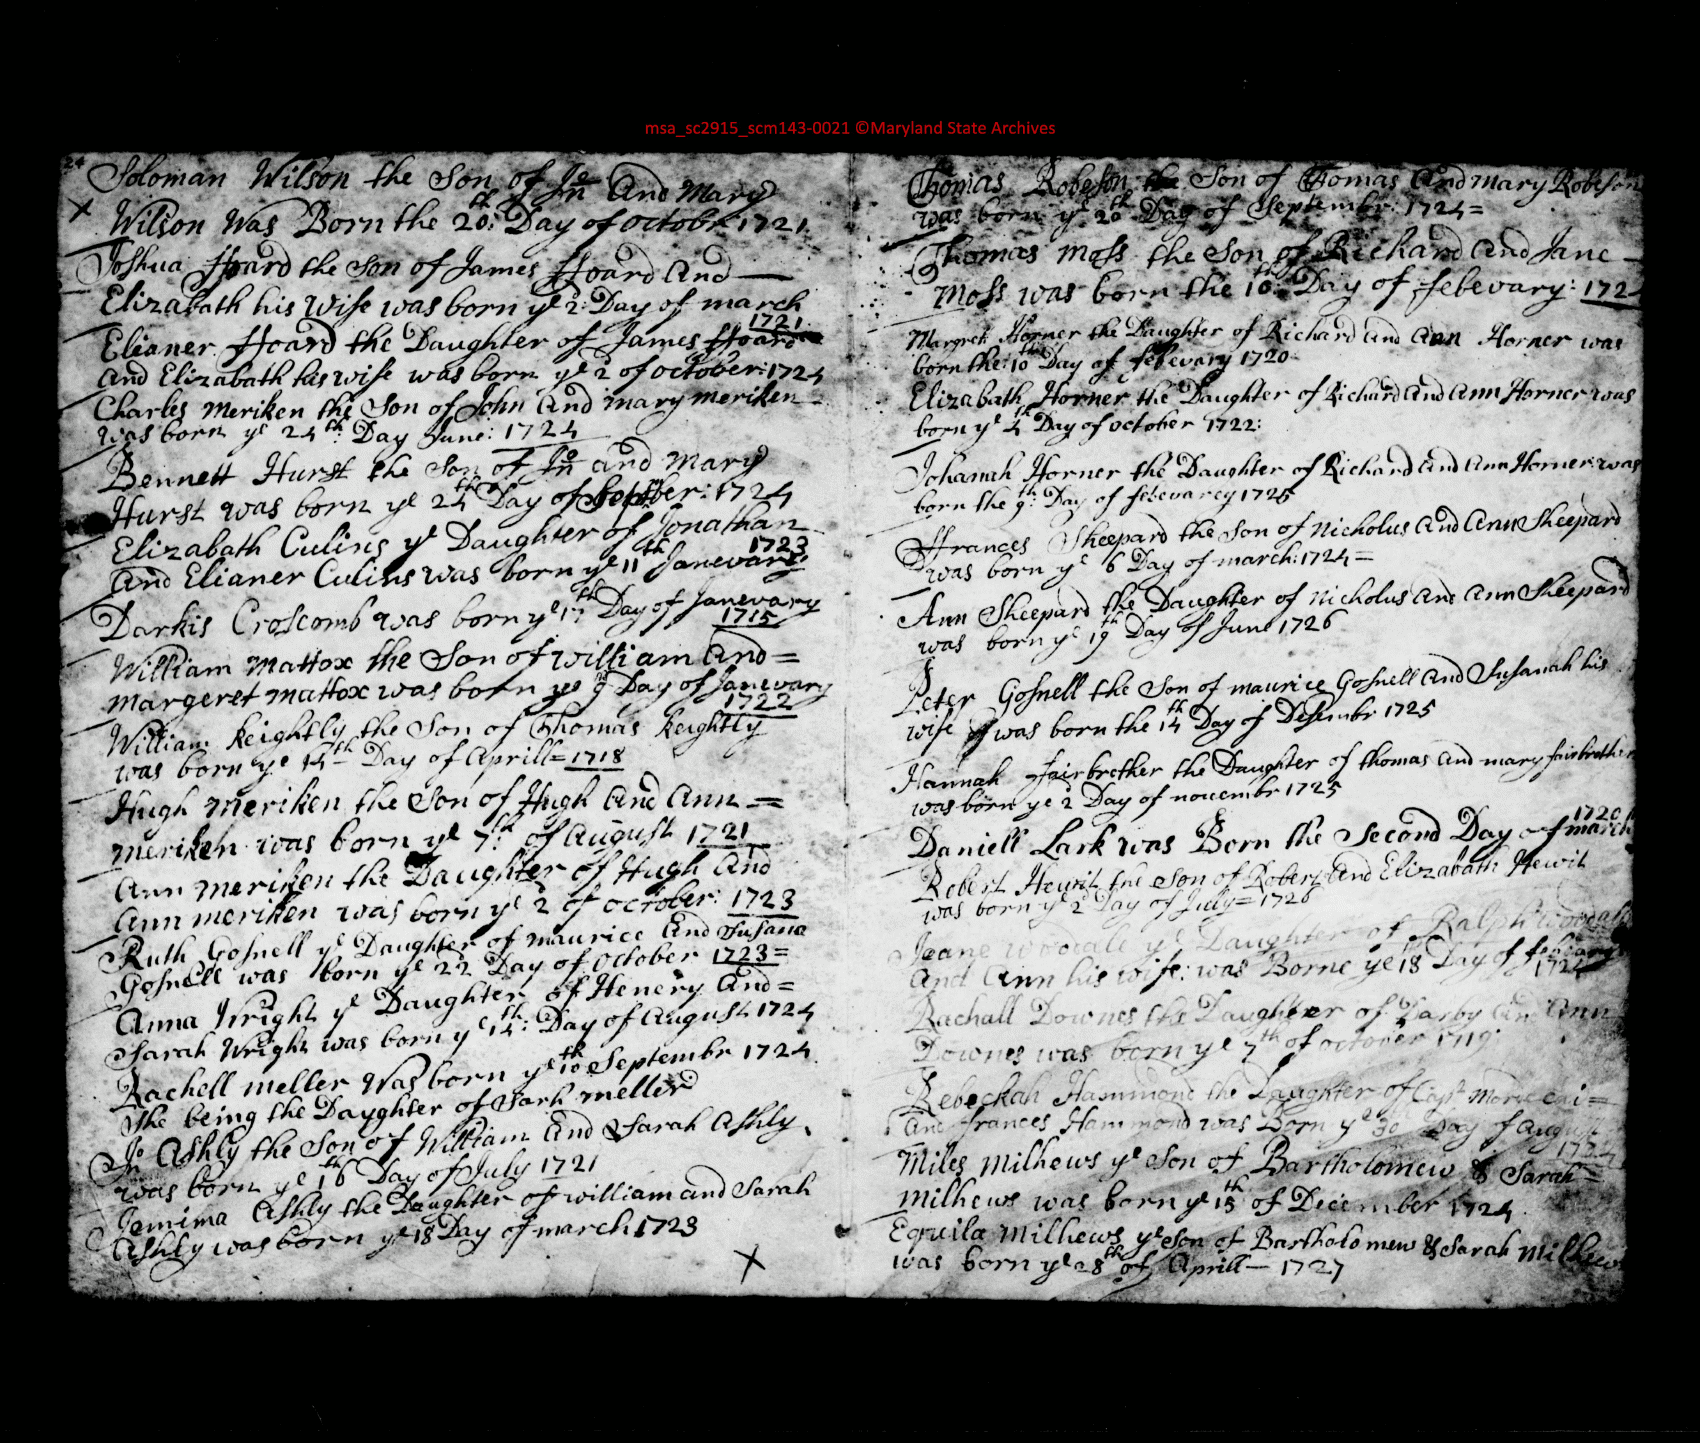 msa_sc2915_scm143-0021 ©Maryland State Archives
24
Soloman Wilson the Son of Jno And Mary
x
Wilson Was Born the 20th: Day of octobr 1721
Joshua Hoard the Son of James Hoard And —
Elizabath his Wife was born ye 2: Day of march
1721
Elianer Hoard the Daughter of James Hoard
And Elizabath his wife was born ye 2 of october: 1724
Charles Meriken the Son of John And mary meriken
was born ye 24th: Day June: 1724
Bennett Hurst the Son of Jno and Mary
Hurst was born ye 24th Day of : 1724
Elizabath Culins ye Daughter of Jonathan
1723
And Elianer Culins was born ye 11th Janevary
Darkis Croscomb was born ye 17th Day of Janevary
1715
William Mattox the Son of william And =
margeret mattox was born ye Day of Janevary
1722
William Keightly the Son of Thomas Keightly
was born ye 14th Day of Aprill = 1718
Hugh Meriken the Son of Hugh And Ann =
Meriken was born ye 7th: of August 1721
Ann Meriken the Daughter of Hugh And
Ann meriken was born ye 2 of october: 1723
Ruth Gosnell ye Daughter of maurice And Susana
Gosnell was born ye 22 Day of october 1723 =
Anna Wright ye Daughter of Henery And =
Sarah Wright was born ye 14th: Day of August 1724
Rachell Meller Was born ye 10th Septembr 1724
She being the Dayghter of Sarh meller
Jno Ashly the Son of William And Sarah Ashly
was born ye 16th Day of July 1721
Jemima Ashly the Daughter of william and Sarah
Ashly was born ye 18 Day of march 1723
x
Thomas Robeson the Son of Thomas And mary Robeson
was born ye 20th Day of Septembr: 1724 =
Thomas Moss the Son of Richard And Jane —
Moss was born the 10th: Day of febevary: 172
Margret Horner the Daughter of Richard And Ann Horner was
born the: 10th Day of febevary 1720
Elizabath Horner the Daughter of Richard And Ann Horner was
born ye 4th Day of october 1722:
Johanah Horner the Daughter of Richard And Ann Horner was
born the 9th: Day of febevarey 1725
ffrances Sheepard the Son of Nicholus And Ann Sheepard
was born ye 6 Day of march: 1724 =
Ann Sheepard the Daughter of Nicholus And Ann Sheepard
was born ye 19th Day of June 1726
Peter Gosnell the Son of maurice Gosnell And Susanah his
wife was born the 14th Day of Desembr 1725
Hannah fairbrother the Daughter of thomas And mary fairbrother
was born ye 2 Day of novembr 1725
1720
Daniell Lark was Born the Second Day of march
Robert Hewit the Son of Robert And Elizabath Hewit
was born ye 2 Day of July = 1726
Jeane Woodale ye Daughter of Ralph
And Ann his wife: was Borne ye 18 Day of
1724
Rachall Downes the Daughter of Darby An Ann
Downes was born ye 7th of october 1719
Rebeckah Hammond the Daughter of Capt
And frances Hammond was Born ye 30 Day of August
1724
Miles Milhews ye Son of Bartholomew & Sarah =
Milhews was born ye 15th of December 1724
Equila Milhews ye Son of Bartholomew & Sarah Milhews
was born ye 28th of Aprill — 1727